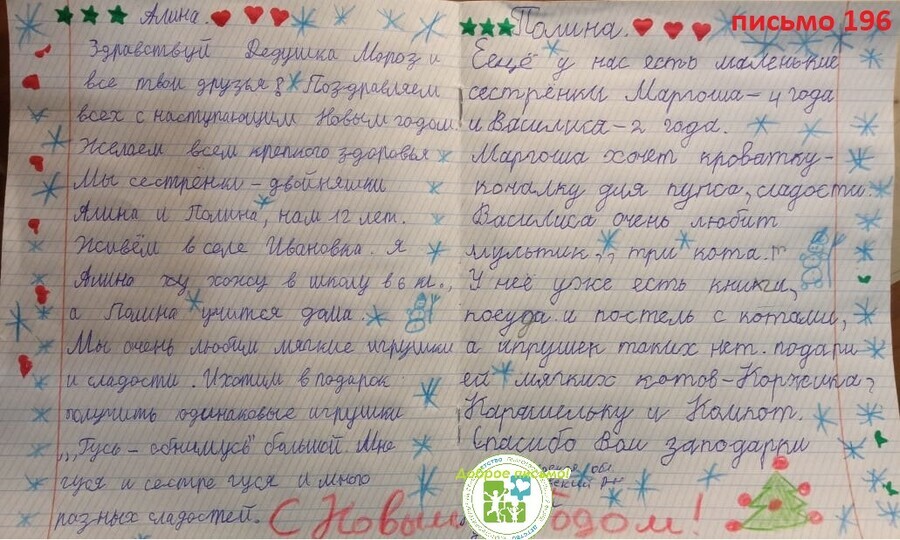 Алина.
Здравствуй Дедушка Мороз и
все твои друзья! Поздравляем
всех с наступающим Новым годом
Желаем всем крепкого здоровья
Мы сестрёнки - двойняшки
Алина и Полина, нам 12 лет.
Живём в селе Ивановка. Я
Алина ху хожу в школу в 6 кл.,
а Полина учится дома.
Мы очень любим мягкие игрушки
и сладости. И хотим в подарок
получить одинаковые игрушки
,,Гусь - обнимусь" большой. Мне
гуся и сестре гуся и много
разных сладостей.
Полина.
письмо 196
Еещё у нас есть маленькие
сестрёнки Маргоша - 4 года
и Василиса - 2 года.
Маргоша хочет кроватку-
качалку для пупса, сладости.
Василиса очень любит
мультик ,, три кота."
У неё уже есть книги,
посуда и постель с котами,
а игрушек таких нет. подари
ей мягких котов - Коржика,
Карамельку и Компот.
Спасибо за подарки
С Новым Годом!
Доброе письмо